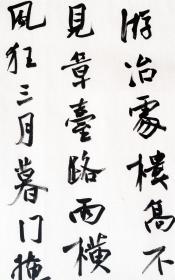 游冶處樓高不
見章臺路雨橫
風狂三月暮门掩